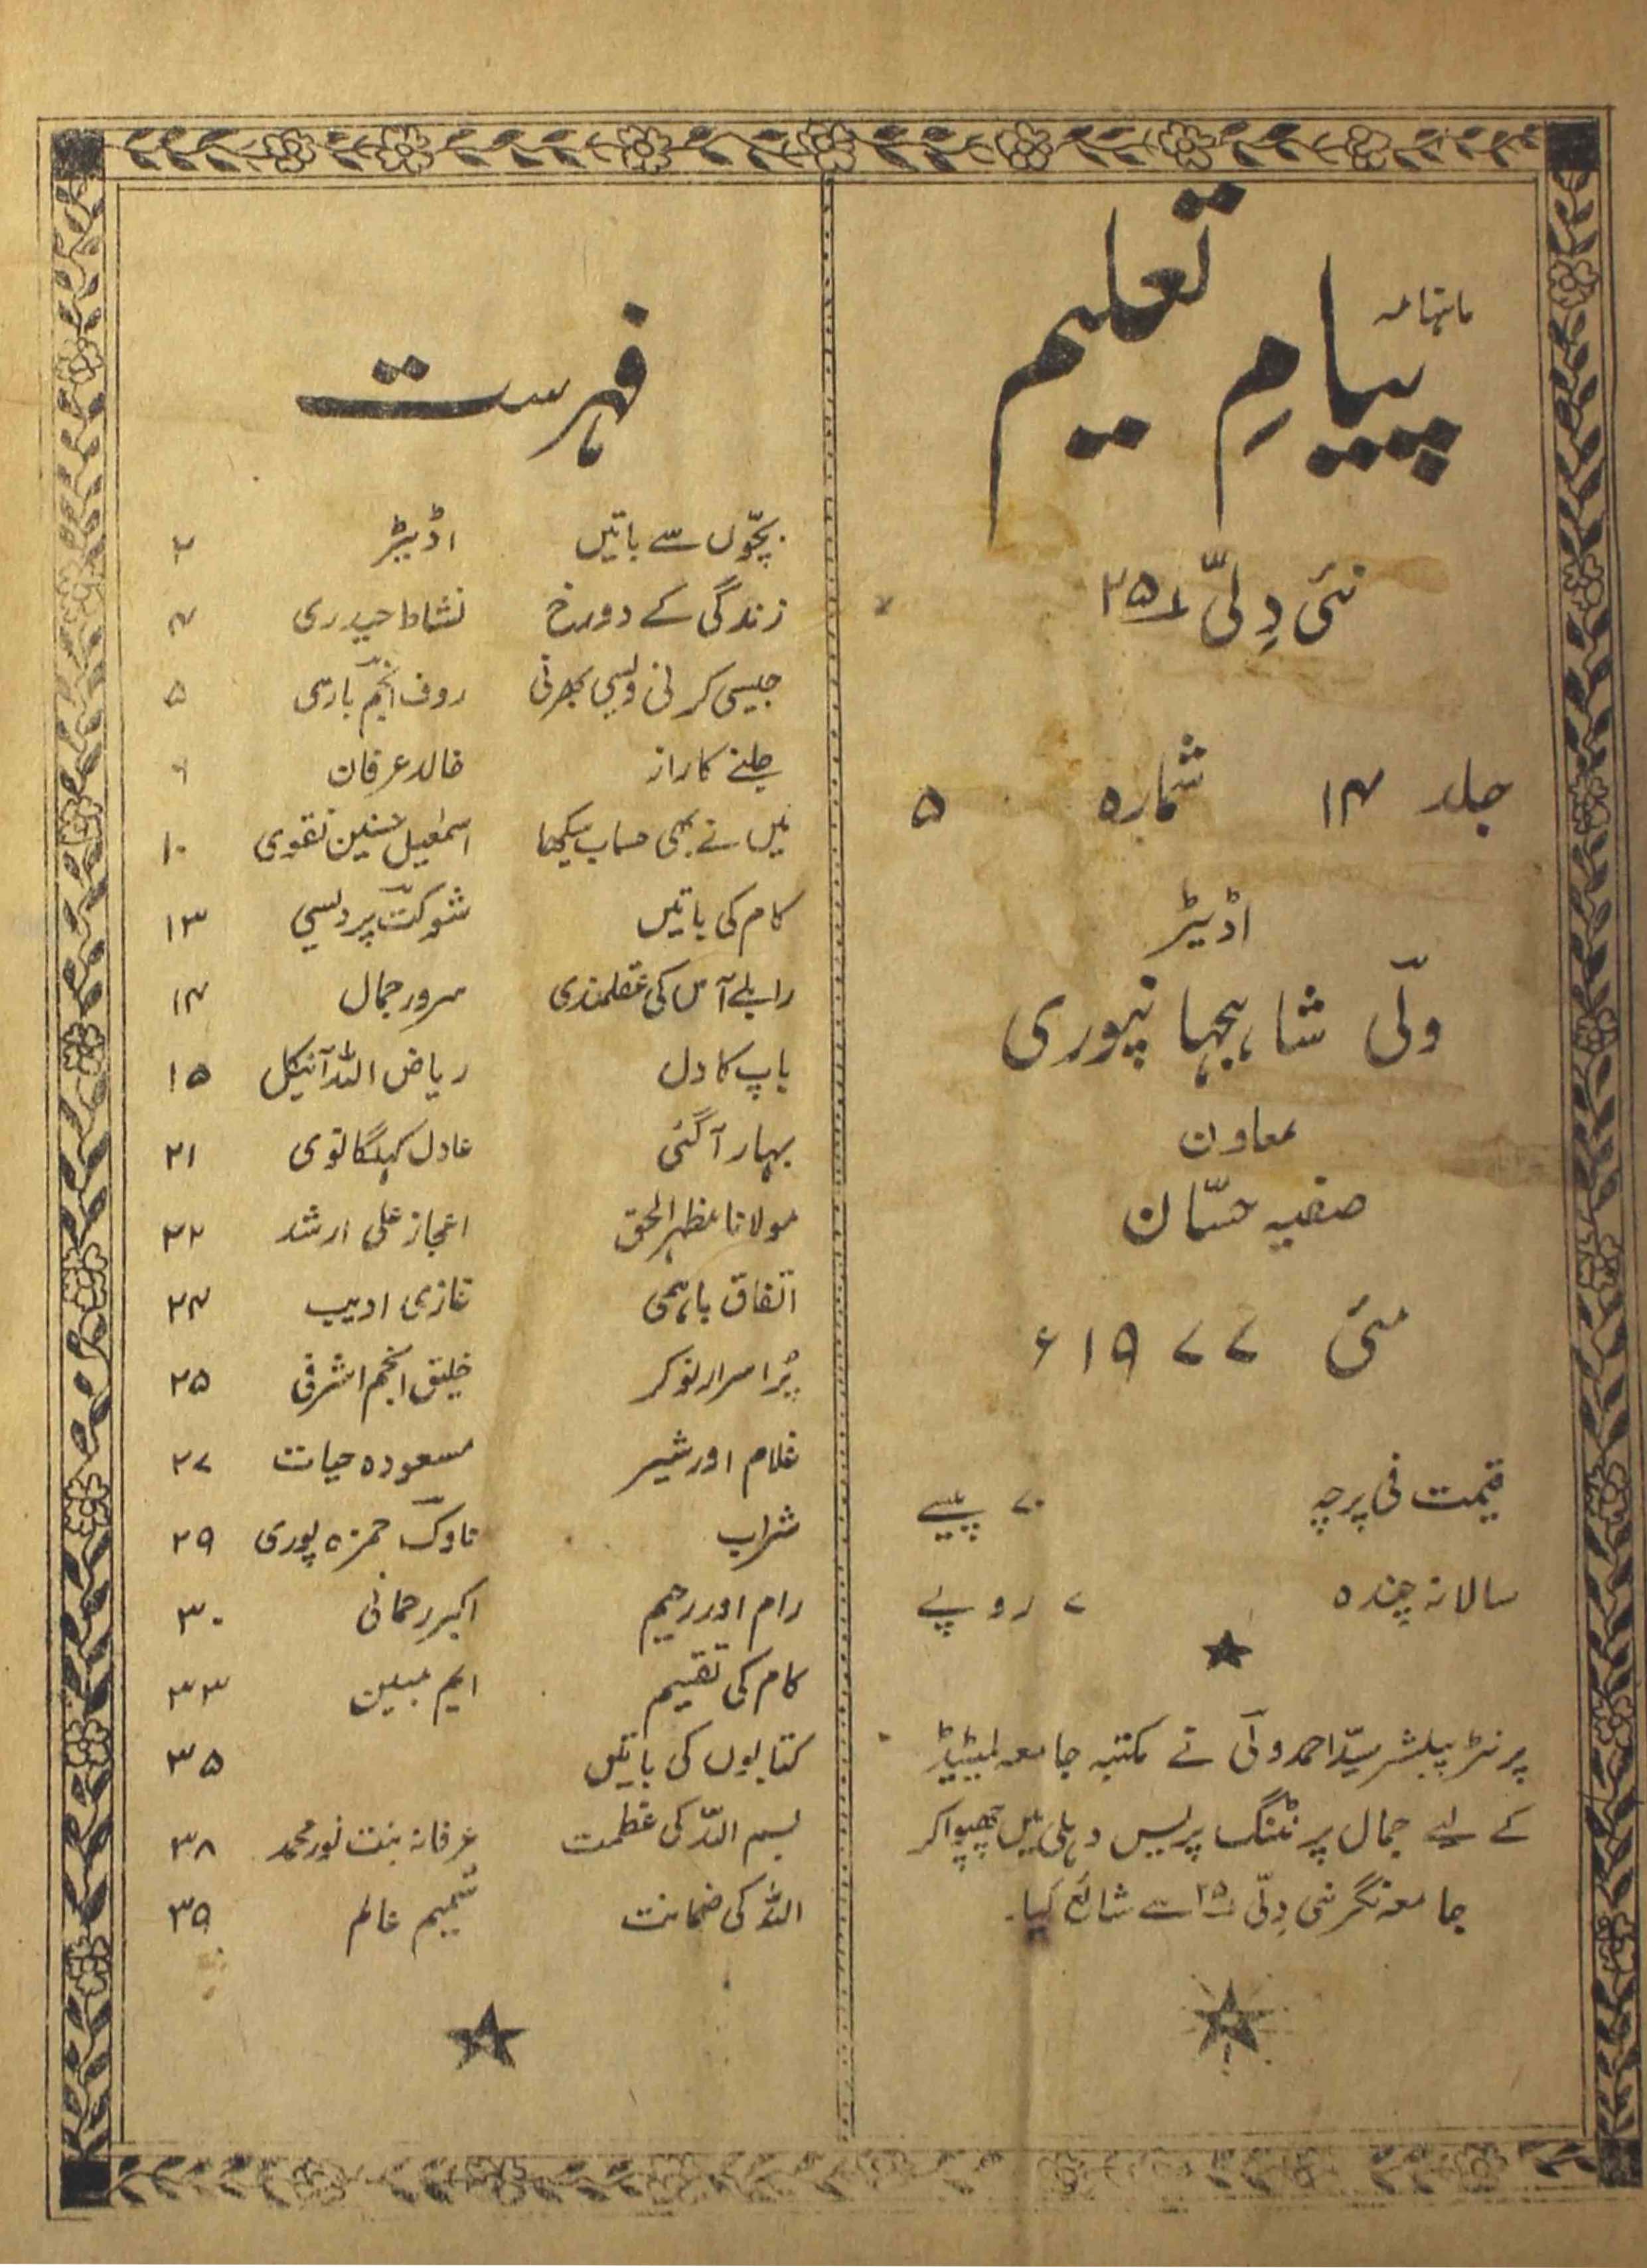 ماہنامہ
پیامِ تعلیم
نئی دِلّی ۲۵
جلد ۱۴ شمارہ ۵
اڈیٹر
ولیؔ شاہجہانپوری
معاون
صفیہ حسّان
مئی ۱۹۷۷ء
قیمت فی پرچہ ۷۰ پیسے
سالانہ چندہ ۷ روپے
پرنٹر پبلشر سیّد احمد ولیؔ نے مکتبہ جامعہ لمیٹیڈ
کے لیے جمال پرنٹنگ پریس دہلی میں چھپوا کر
جامعہ نگر نئی دِلّی ۲۵ سے شائع کیا۔
فہرست
بچّوں سے باتیں اڈیٹر ۲
زندگی کے دو رخ نشاط حیدری ۴
جیسی کرنی ویسی بھرنی روف انجمؔ بارہی ۵
جلنے کا راز خالد عرفان ۶
میں نے بھی حساب سیکھا اسمٰعیل حسنین نقوی ۱۰
کام کی باتیں شوکتؔ پردیسی ۱۳
رابلے آس کی عقلمندی سرور جمال ۱۴
باپ کا دل ریاض اللہ آنیکل ۱۵
بہار آگئی عادل کہلگانوی ۲۱
مولانا مظہر الحق اعجاز علی ارشد ۲۲
اتفاق باہمی غازی ادیب ۲۴
پُراسرار نوکر خلیق انجم اشرفی ۲۵
غلام اور شیر مسعودہ حیات ۲۷
شراب ناوکؔ حمزہ پوری ۲۹
رام اور رحیم اکبر رحمانی ۳۰
کام کی تقسیم ایم مبین ۳۳
کتابوں کی باتیں ۳۵
بسم اللہ کی عظمت عرفانہ بنت نور محمد ۳۸
اللہ کی ضمانت شمیم عالم ۳۹